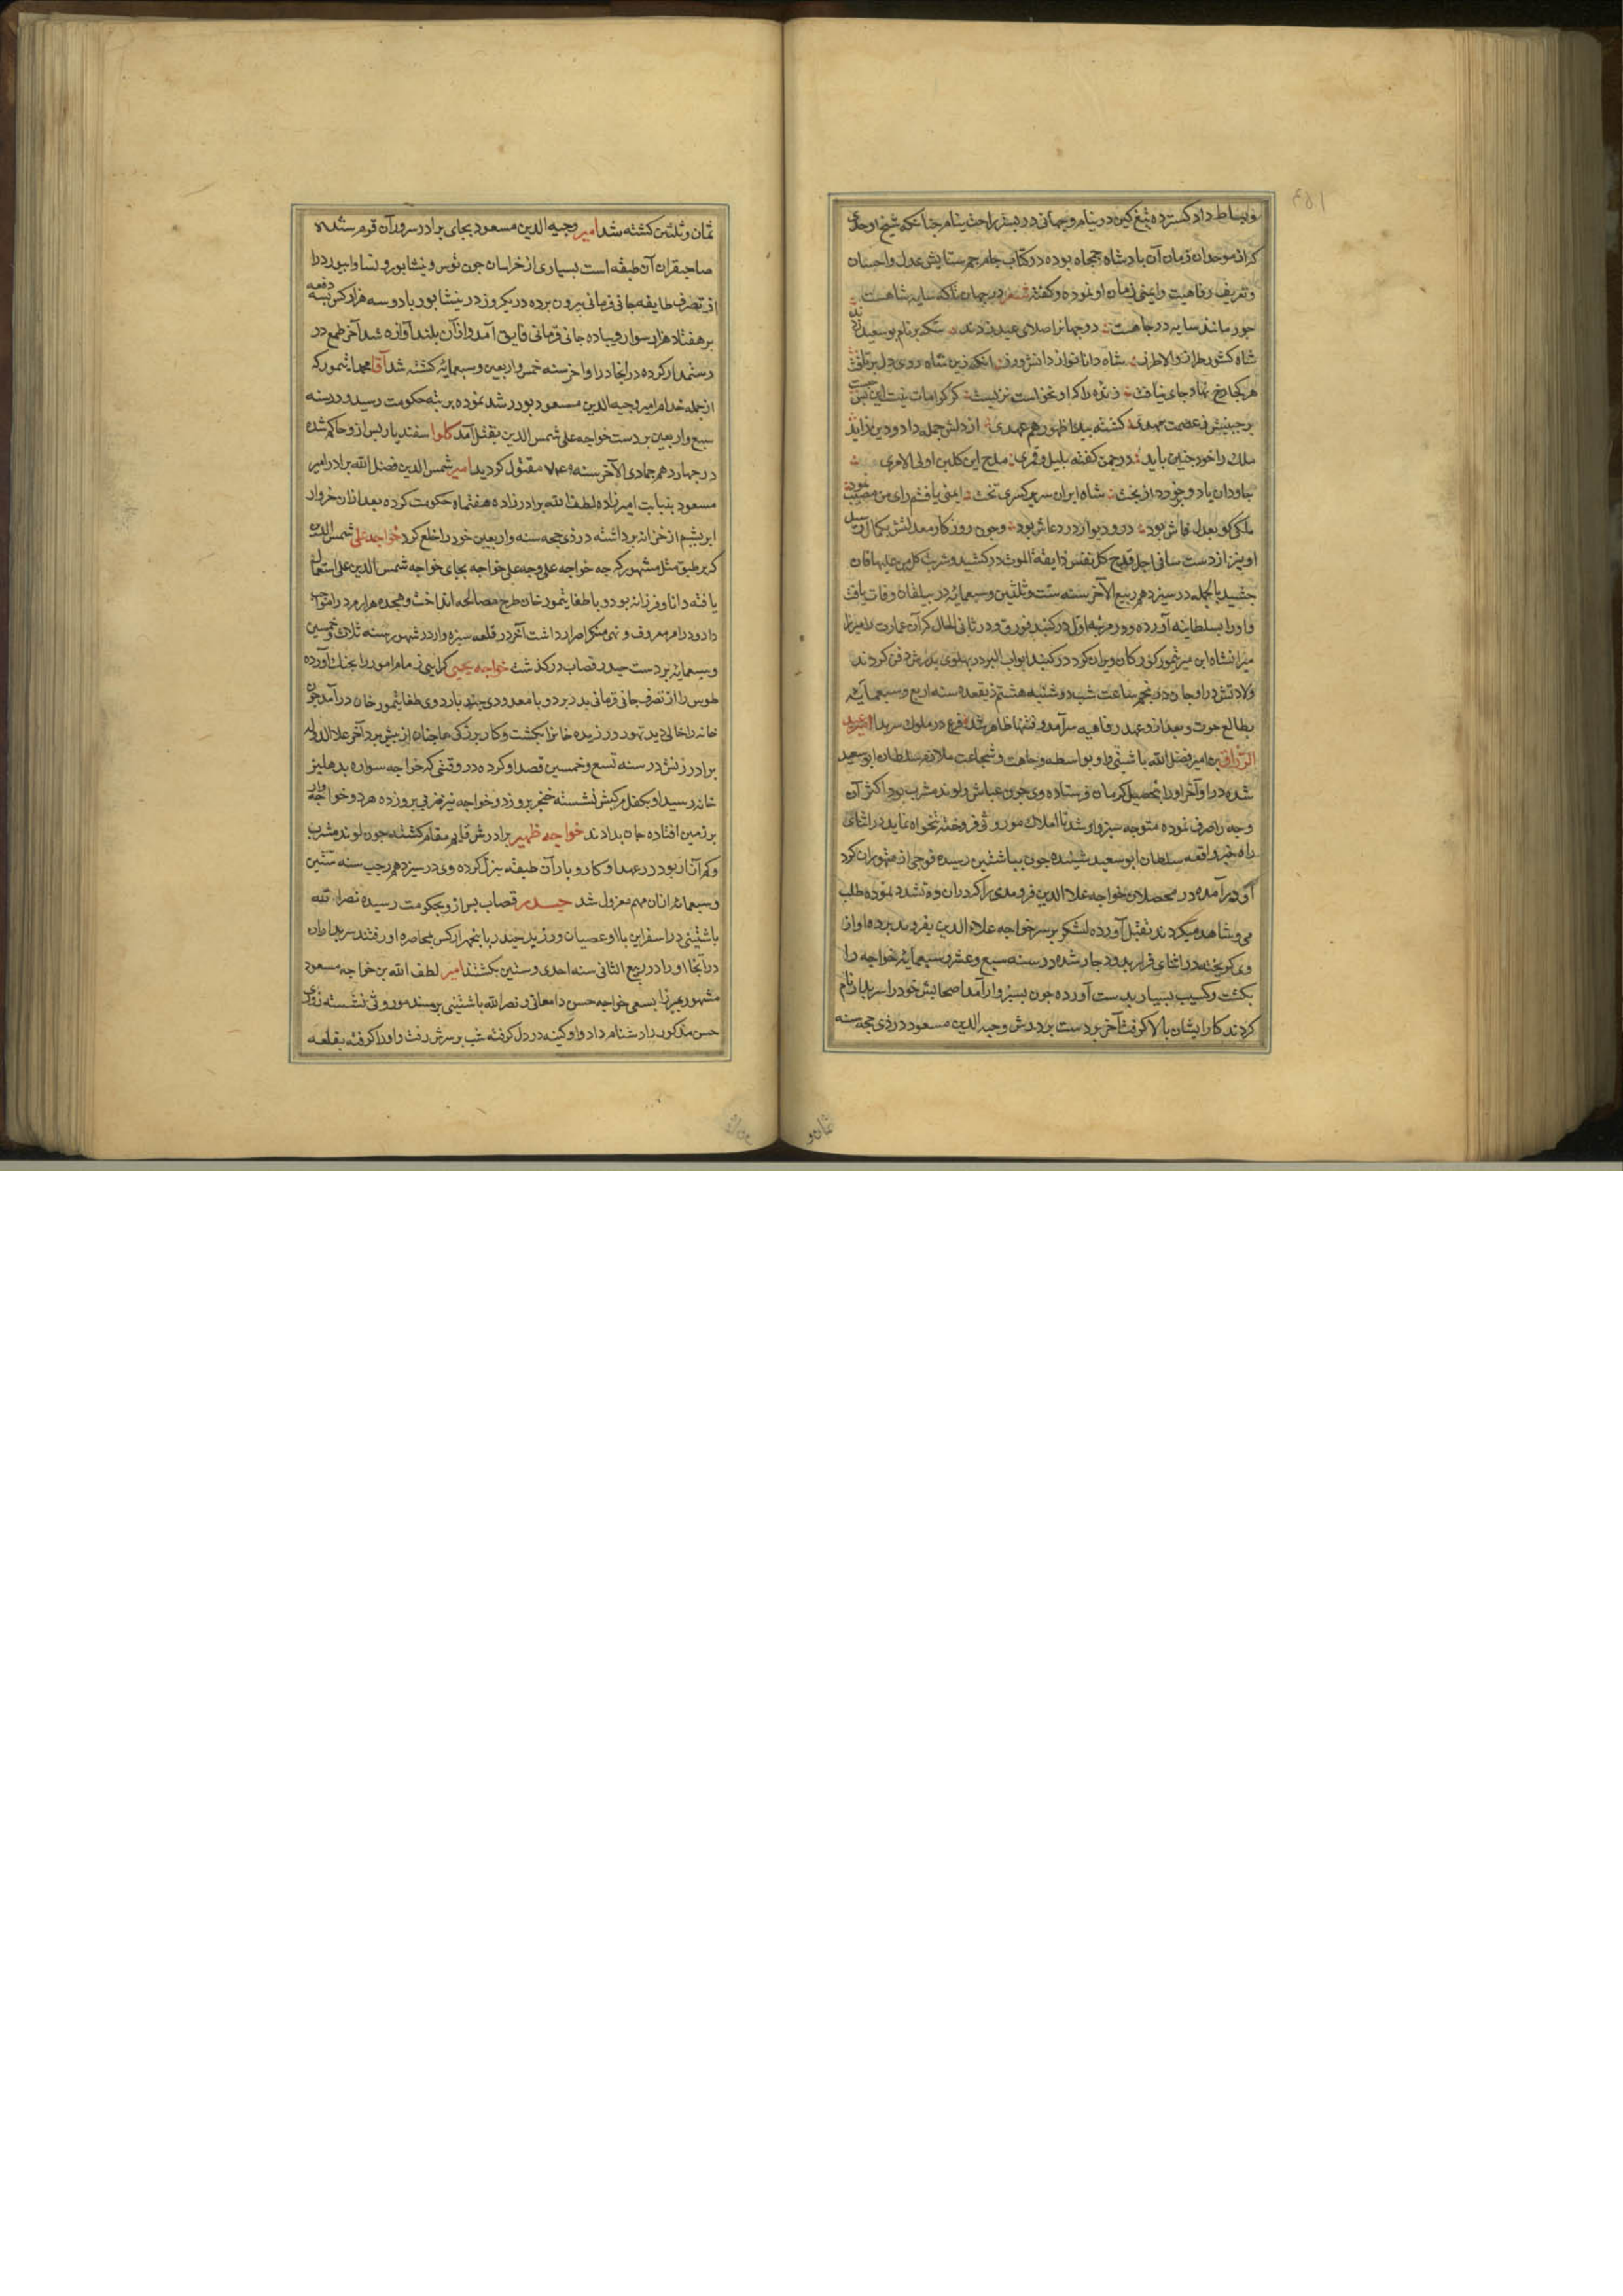 و بساط داد گسترده تیغ کین در نیام و جهانی در بستر راحت بنام چنانکه شیخ اوحدی
که از موحدان زمان آن بادشاه جمجاه بوده در کتاب جام جم ستایش عدل و احسان
و تعریف رفاهیت و ایمنی زمان او نموده و کفته شعر در جهان تا که سایه شاهست
جور مانند سایه در چاهست دو جهانرا صلای عید زدند سکه بر نام بوسعید زدند
شاه کشور طراز والا طرز شاه دانا نواز دانش ورز آنکه زین شاه روی دل برتافت
هر کجا رخ نهاد جای نیافت زنده را کرا و نخواست نزیست کر کرامات نیست این بس چیست
بر جبینش ز عصمت مهدی کشته پیدا ظهور هم عهدی از دلش جمله داد و دین زاید
ملک را خود چنین باید در چمن کفته بلبل و قمری مدح این کلبن اولی الامری
جاودان باد و خرد از بخت شاه ایران سریر کسری تخت ایمنی یافتم رای من مصیب نمود
ملکی کو بعدل فاش بود در و دیوار در دعاش بود و چون روزکار معدلتش بکمال رسید
او نیز از دست ساقی اجل قدح کل نفس ذایقة الموت درکشید و شربت کل من علیها فان
چشید بالجمله در سیزدهم ربیع الآخر سنه ست و ثلثین و سبعمایه در بیلقان وفات یافت
و او را بسلطانیه آورده و در مرتبه اول در کنبد فورق و در ثانی الحال که آن عمارت را میرزا
میرانشاه ابن میر تیمور کورکان ویران کرد در کنبد ابواب البر در پهلوی پدرش دفن کردند
ولادتش در اوجان در پنجم ساعت شب دوشنبه هشتم ذیقعده سنه اربع و سبعمایه
بطالع حوت و بعد از و عهد رفاهیه سرآمد و فتنها ظاهر شد فرع در ملوک سربدار امیر عبد
الرزاق بن امیر فضل الله باشتنی و او بواسطه وجاهت و شجاعت ملازم سلطان ابوسعید
شده در اواخر او را بتحصیل کرمان فرستاده وی چون عیاش و لوند مشرب بود اکثر آن
وجه را صرف نموده متوجه سبزوار شد تا املاک موروثی فروخته تنخواه نماید در اثنای
راه خبر واقعه سلطان ابوسعید شنیده چون بباشتین رسیده فوجی از متهوران کرد
او درآمده در محصلان خواجه علاء الدین فریومدی را که در آن ده تشدد نموده طلب
می و شاهد میکردند بقتل آورده لشکر بر سر خواجه علاء الدین بفریومد برده او از
وی کریخته در اثنای فرار بدو دچار شده در سنه سبع و عشر و سبعمایه خواجه را
بکشت و کسیب بسیار بدست آورده چون بسبزوار آمد اصحابش خود را سربدار نام
کردند کار ایشان بالا کرفت آخر بر دست برادرش وجیه الدین مسعود در ذی حجه سنه
ثمان و
ثمان و ثلثین کشته شد امیر وجیه الدین مسعود بجای برادر سرور آن قوم شده
صاحبقران آن طبقه است بسیاری از خراسان چون توس و نیشابور و نسا و ابیورد را
از تصرف طایفه جانی قربانی بیرون برده در یکروز در نیشابور با دو سه هزار کس بسه دفعه
بر هفتاد هزار سوار و پیاده جانی قربانی فایق آمد و از آن بلند آوازه شد آخر طمع در
رستمدار کرده در آنجا در اواخر سنه خمس و اربعین و سبعمایه کشته شد آقا محمد ایتمور که
از جمله خدام امیر وجیه الدین مسعود بود رشد نموده برتبه حکومت رسید و در سنه
سبع و اربعین بر دست خواجه علی شمس الدین بقتل آمد کلو اسفندیار پس از و حاکم شده
در چهاردهم جمادی الآخر سنه ۷۴۹ مقتول کردید امیر شمس الدین فضل الله برادر امیر
مسعود بنیابت امیرزاده لطف الله برادرزاده هفتماه حکومت کرده بعد از آن خروار
ابریشم از خزانه برداشته در ذی حجه سنه و اربعین خود را خلع کرد خواجه علی شمس الدین
که بر طبق مثل مشهور که چه خواجه علی و چه علی خواجه بجای خواجه شمس الدین علی استعمال
یافته دانا و فرزانه بود و با طغایتمور خان طرح مصالحه انداخت و هجده هزار مرد را مواجب
داد و در امر معروف و نهی منکر اصرار داشت آخر در قلعه سبزوار در شهور سنه ثلاث و خمسین
و سبعمایه بر دست حیدر قصاب درکذشت خواجه یحیی کرابی زمام امور را بچنک آورده
طوس را از تصرف جانی قربانی بدر برد و با معدودی چند باردوی طغایتمور خان درآمد چون
خانه را خالی دید تهور ورزیده خانرا بکشت و کار بزرکی چنان از پیش برد آخر علاء الدوله
برادر زنش در سنه تسع و خمسین قصد او کرده در وقتی که خواجه سواره بدهلیز
خانه رسید او بکفل مرکبش نشسته خنجر برو زد و خواجه نیز ضربی برو زده هر دو خوار
بر زمین افتاده جان بدادند خواجه ظهیر برادرش قایم مقام کشته چون لوند مشرب
و کم آزار بود در عهد او کار و بار آن طبقه تنزل کرده وی در سیزدهم رجب سنه ستین
و سبعمایه از آن مهم معزول شد حیدر قصاب پس از و بحکومت رسیده نصر الله
باشتینی در اسفراین با او عصیان ورزید حیدر با پنجهزار کس بمحاصره او رفتند سربداران
در آنجا او را در ربیع الثانی سنه احدی و ستین بکشتند امیر لطف الله بن خواجه مسعود
مشهور بمیرزا بسعی خواجه حسن دامغانی و نصر الله باشتینی بر مسند موروثی نشسته
حسن مذکور را دشنام داد و او کینه در دل کرفته شب بر سرش رفت و او را کرفته بقلعه